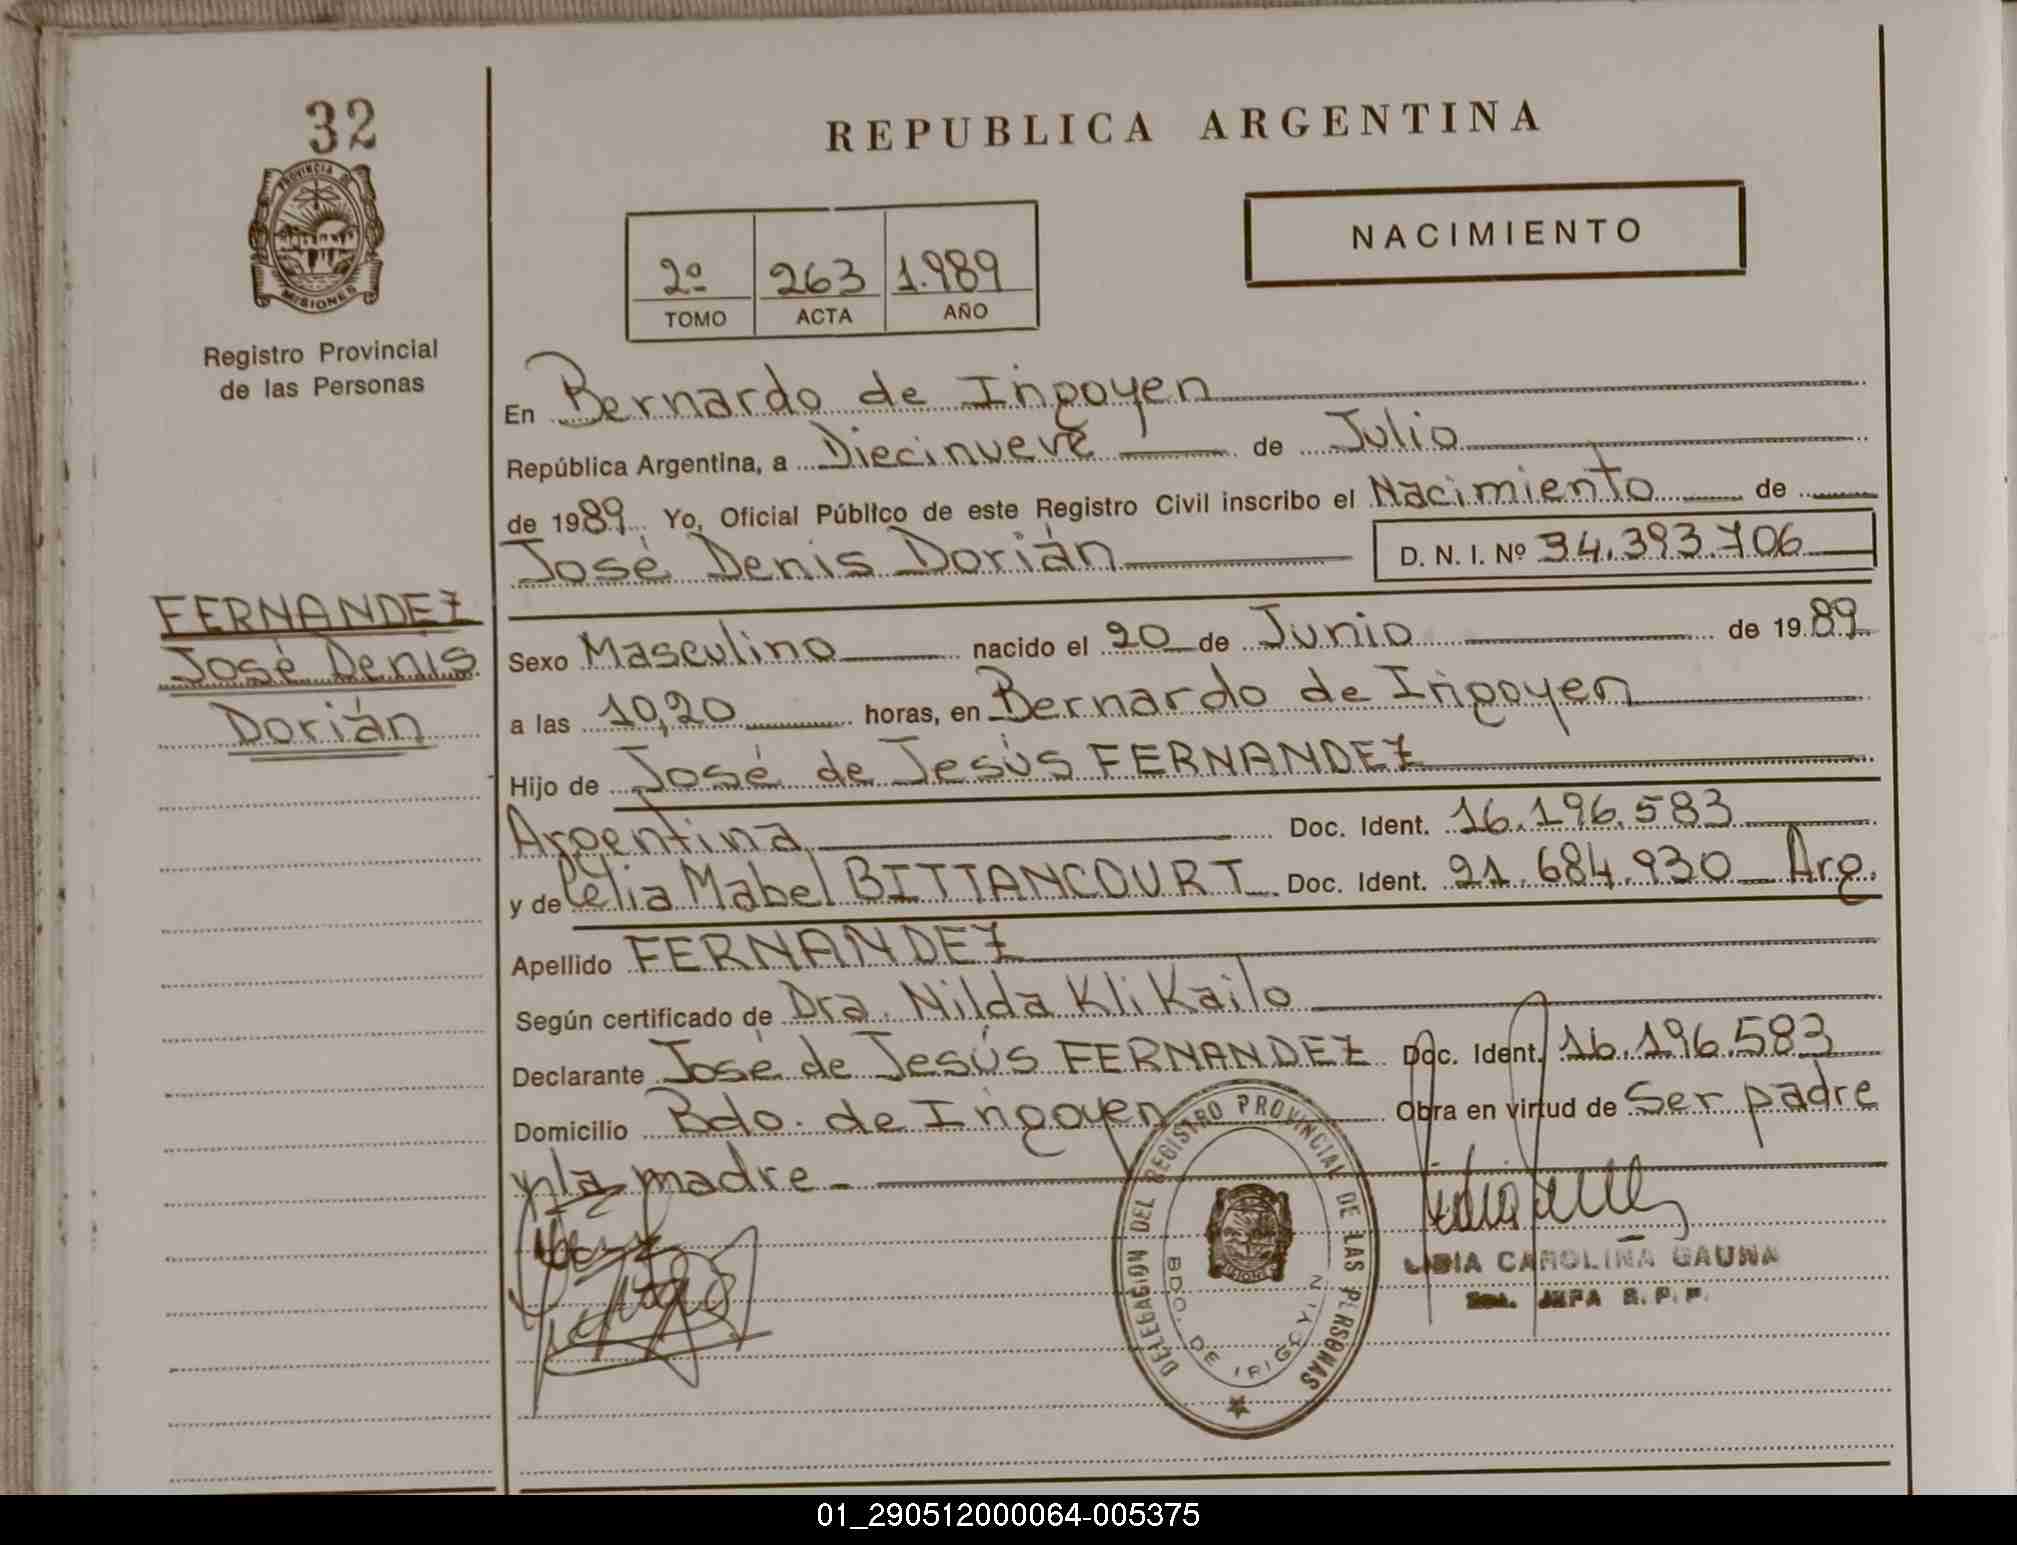 32
PROVINCIA DE
MISIONES
Registro Provincial
de las Personas
FERNANDEZ
José Denis
Dorián
REPUBLICA ARGENTINA
NACIMIENTO
2º 263 1.989
TOMO ACTA AÑO
En Bernardo de Irigoyen
República Argentina, a Diecinueve de Julio
de 1989 Yo, Oficial Público de este Registro Civil inscribo el Nacimiento de
José Denis Dorián D. N. I. Nº 34.393.706
Sexo Masculino nacido el 20 de Junio de 1989
a las 10,20 horas, en Bernardo de Irigoyen
Hijo de José de Jesús FERNANDEZ
Argentina Doc. Ident. 16.196.583
y de Celia Mabel BITTANCOURT Doc. Ident. 21.684.930 Arg.
Apellido FERNANDEZ
Según certificado de Dra. Nilda Klikailo
Declarante José de Jesús FERNANDEZ Doc. Ident. 16.196.583
Domicilio Bdo. de Irigoyen Obra en virtud de Ser padre
y la madre
DELEGACION DEL REGISTRO PROVINCIAL DE LAS PERSONAS
BDO. DE IRIGOYEN
MISIONES
LIDIA CAROLINA GAUNA
JEFA R.P.P.
01_290512000064-005375